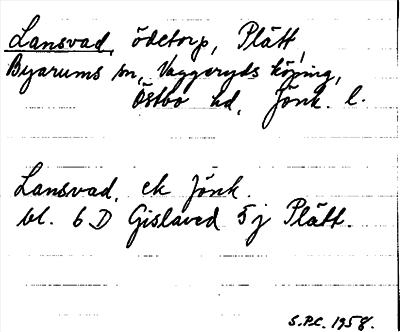 Lansvad, ödetorp, Plätt,
Byarums sn, Vaggeryds köping,
Östbo hd, Jönk. l.
Lansvad, ek Jönk.
bl. 6 D Gislaved 5 j Plätt.
S.P.C. 1958.